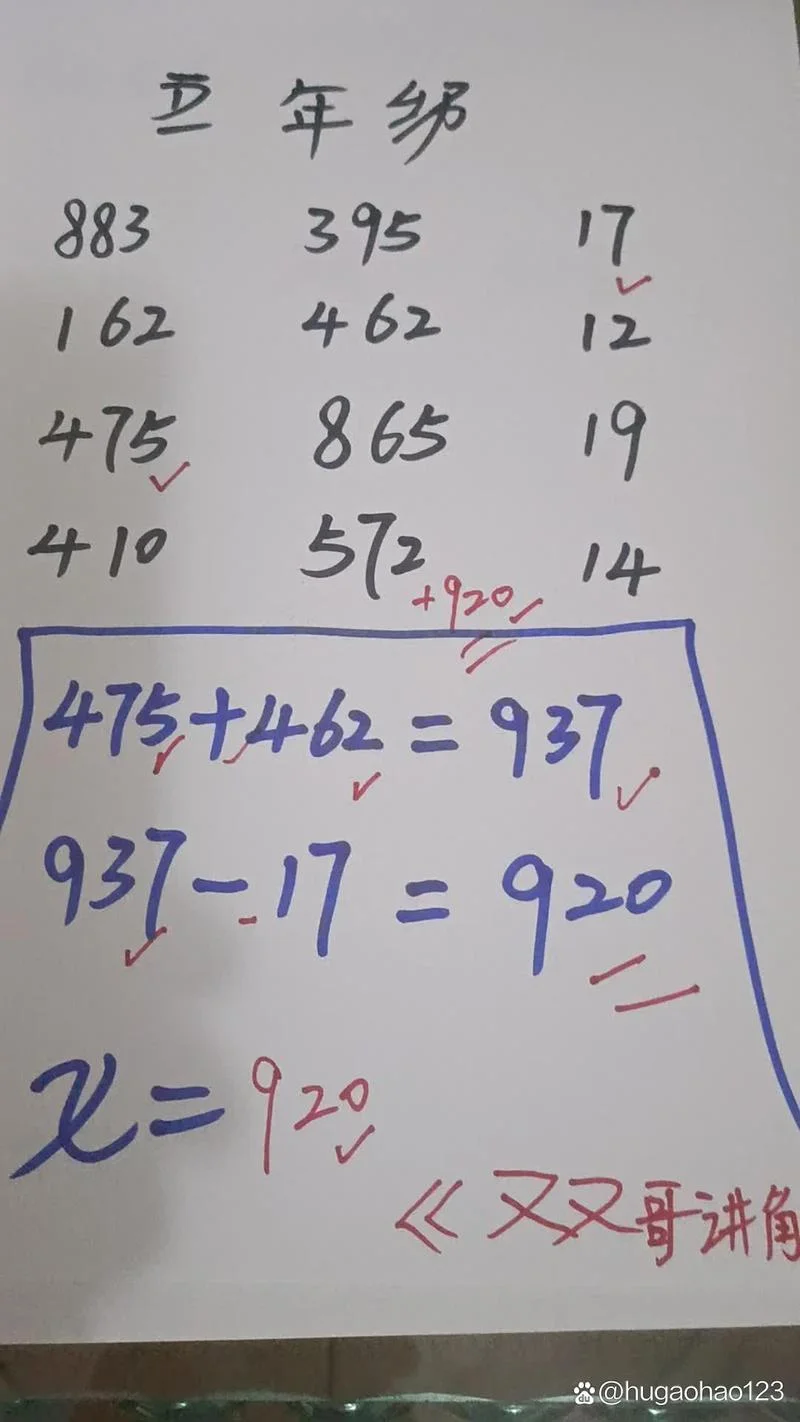 五年级
883 395 17
162 462 12
475 865 19
410 572 14
+920
475+462=937
937-17=920
x=920
《又又哥讲角
@hugaohao123